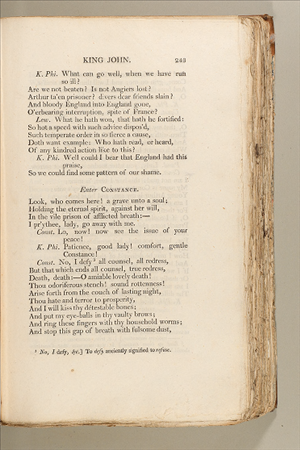 KING JOHN. 243
K. Phi. What can go well, when we have run
so ill?
Are we not beaten? Is not Angiers lost?
Arthur ta'en prisoner? divers dear friends slain?
And bloody England into England gone,
O'erbearing interruption, spite of France?
Lew. What he hath won, that hath he fortified:
So hot a speed with such advice dispos'd,
Such temperate order in so fierce a cause,
Doth want example: Who hath read, or heard,
Of any kindred action like to this?
K. Phi. Well could I bear that England had this
praise,
So we could find some pattern of our shame.
Enter CONSTANCE.
Look, who comes here! a grave unto a soul;
Holding the eternal spirit, against her will,
In the vile prison of afflicted breath:—
I pr'ythee, lady, go away with me.
Const. Lo, now! now see the issue of your
peace!
K. Phi. Patience, good lady! comfort, gentle
Constance!
Const. No, I defy ¹ all counsel, all redress,
But that which ends all counsel, true redress,
Death, death:—O amiable lovely death!
Thou odoriferous stench! sound rottenness!
Arise forth from the couch of lasting night,
Thou hate and terror to prosperity,
And I will kiss thy détestable bones;
And put my eye-balls in thy vaulty brows;
And ring these fingers with thy household worms;
And stop this gap of breath with fulsome dust,
¹ No, I defy, &c.] To defy anciently signified to refuse.